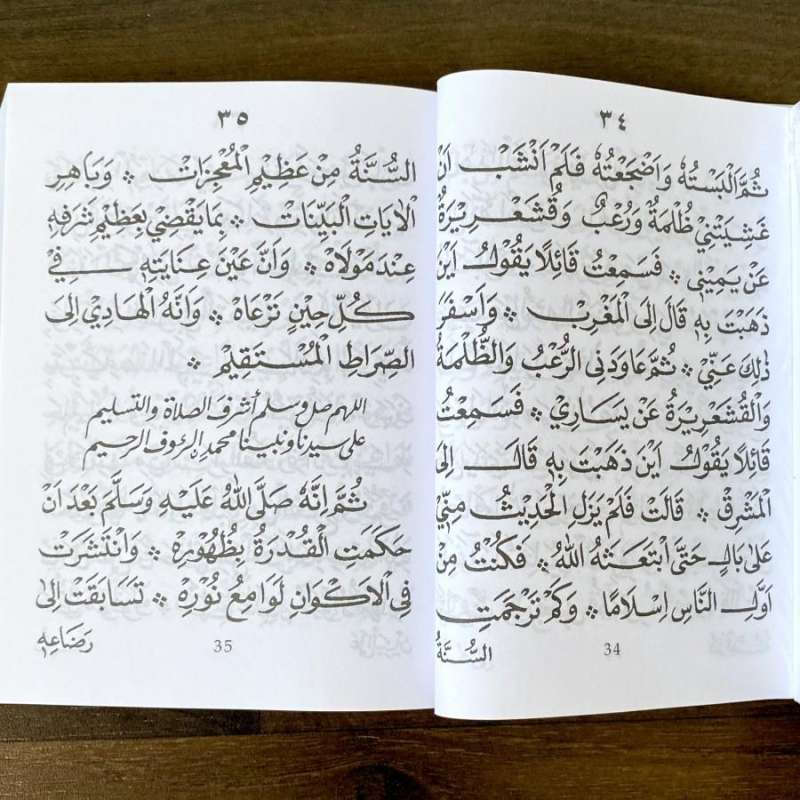 ٣٤
ثُمَّ اَلْبَسْتُهُ وَاَضْجَعْتُهُ فَلَمْ اَنْشَبْ اَنْ
غَشِيَتْنِيْ ظُلْمَةٌ وَرُعْبٌ وَقُشَعْرِيْرَةٌ
عَنْ يَمِيْنِي * فَسَمِعْتُ قَائِلًا يَقُوْلُ اَيْنَ
ذَهَبْتَ بِهِ قَالَ اِلَى الْمَغْرِبْ * وَاَسْفَرَ
ذٰلِكَ عَنِّيْ * ثُمَّ عَاوَدَنِى الرُّعْبُ وَالظُّلْمَةُ
وَالْقُشَعْرِيْرَةُ عَنْ يَسَارِيْ * فَسَمِعْتُ
قَائِلًا يَقُوْلُ اَيْنَ ذَهَبْتَ بِهِ قَالَ اِلَى
الْمَشْرِقْ * قَالَتْ فَلَمْ يَزَلِ الْحَدِيْثُ مِنِّيْ
عَلٰى بَالٍ حَتَّى ابْتَعَثَهُ اللهُ * فَكُنْتُ مِنْ
اَوَّلِ النَّاسِ اِسْلَامًا * وَكَمْ تَرْجَمَتِ
السُّنَّةُ
34
٣٥
السُّنَّةُ مِنْ عَظِيْمِ الْمُعْجِزَاتْ * وَبَاهِرِ
الْاٰيَاتِ الْبَيِّنَاتْ * بِمَا يَقْضِيْ بِعَظِيْمِ شَرَفِهِ
عِنْدَ مَوْلَاهْ * وَاَنَّ عَيْنَ عِنَايَتِهِ فِيْ
كُلِّ حِيْنٍ تَرْعَاهْ * وَاَنَّهُ الْهَادِيْ اِلَى
الصِّرَاطِ الْمُسْتَقِيْمِ *
اللهم صل وسلم أشرف الصلاة والتسليم
على سيدنا ونبينا محمد الرءوف الرحيم
ثُمَّ اِنَّهُ صَلَّى اللهُ عَلَيْهِ وَسَلَّمَ بَعْدَ اَنْ
حَكَمَتِ الْقُدْرَةُ بِظُهُوْرِهْ * وَانْتَشَرَتْ
فِى الْاَكْوَانِ لَوَامِعُ نُوْرِهْ * تَسَابَقَتْ اِلٰى
رَضَاعِهِ
35